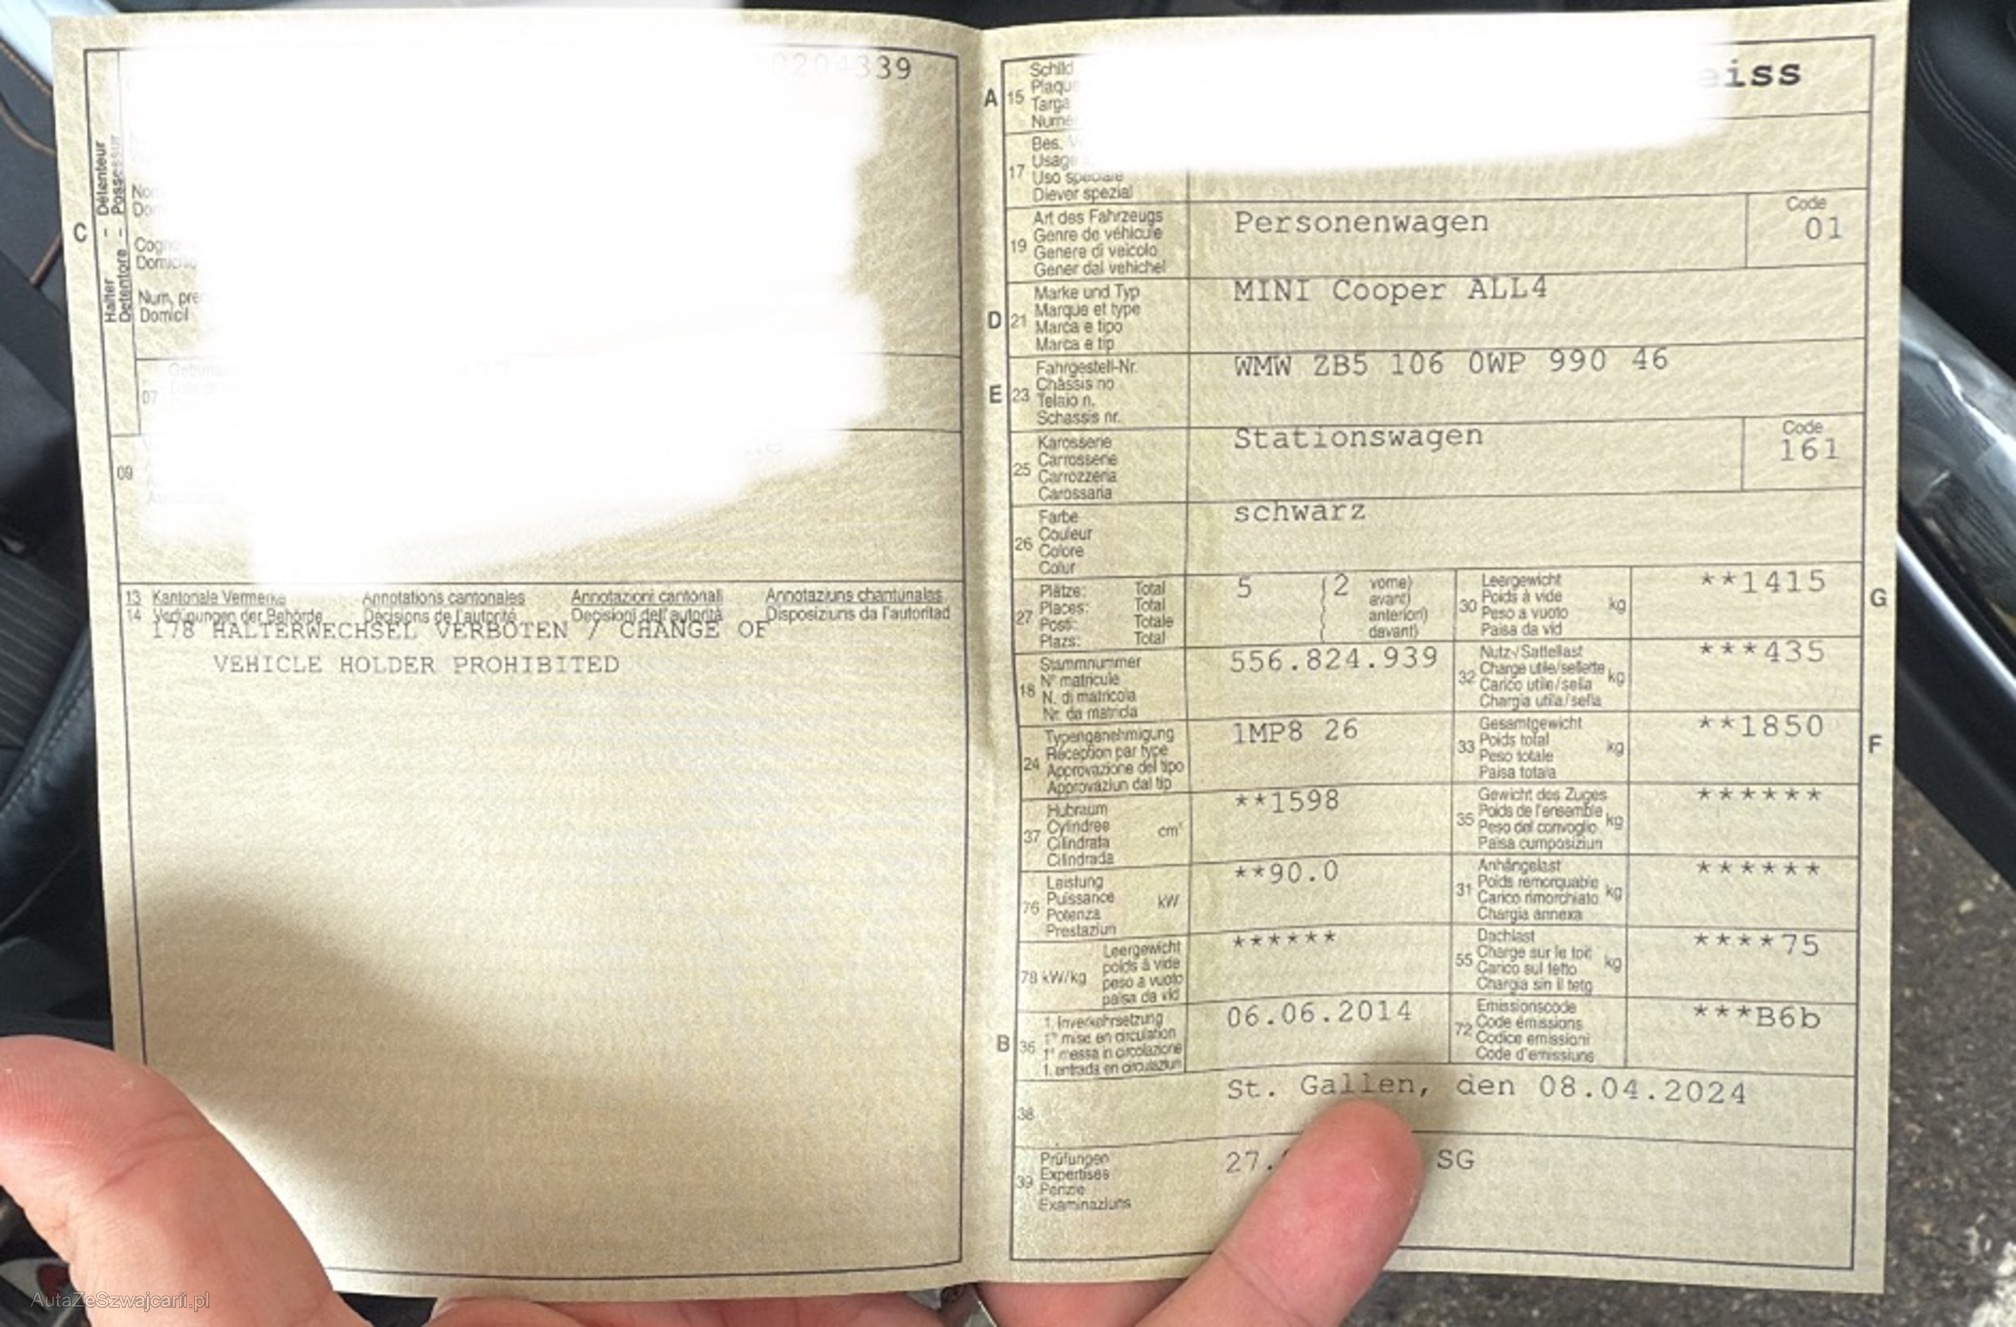 0204339
C
Halter – Détenteur
Detentore – Possessur
Domicil
07
09
13 Kantonale Vermerke Annotations cantonales Annotazioni cantonali Annotaziuns chantunalas
14 Verfügungen der Behörde Décisions de l'autorité Decisioni dell'autorità Disposiziuns da l'autoritad
178 HALTERWECHSEL VERBOTEN / CHANGE OF
VEHICLE HOLDER PROHIBITED
A 15 Schild
Targa
eiss
17 Bes.
Usage
Uso speciale
Diever spezial
19 Art des Fahrzeugs
Genre de véhicule
Genere di veicolo
Gener dal vehichel
Personenwagen
Code
01
D 21 Marke und Typ
Marque et type
Marca e tipo
Marca e tip
MINI Cooper ALL4
E 23 Fahrgestell-Nr.
Châssis no
Telaio n.
Schassis nr.
WMW ZB5 106 0WP 990 46
25 Karosserie
Carrosserie
Carrozzeria
Carossaria
Stationswagen
Code
161
26 Farbe
Couleur
Colore
Colur
schwarz
27 Plätze: Total
Places: Total
Posti: Totale
Plazs: Total
5 (2 vorne)
avant)
anteriori)
davant)
30 Leergewicht
Poids à vide
Peso a vuoto
Paisa da vid
kg
**1415
G
18 Stammnummer
N° matricule
N. di matricola
Nr. da matricla
556.824.939
32 Nutz-/Sattellast
Charge utile/sellette
Carico utile/sella
Chargia utila/sella
kg
***435
24 Typengenehmigung
Réception par type
Approvazione del tipo
Approvaziun dal tip
1MP8 26
33 Gesamtgewicht
Poids total
Peso totale
Paisa totala
kg
**1850
F
37 Hubraum
Cylindrée
Cilindrata
Cilindrada
cm³
**1598
35 Gewicht des Zuges
Poids de l'ensemble
Peso del convoglio
Paisa cumposiziun
kg
******
76 Leistung
Puissance
Potenza
Prestaziun
kW
**90.0
31 Anhängelast
Poids remorquable
Carico rimorchiato
Chargia annexa
kg
******
78 kW/kg Leergewicht
poids à vide
peso a vuoto
paisa da vid
******
55 Dachlast
Charge sur le toit
Carico sul tetto
Chargia sin il tetg
kg
****75
B 36 1. Inverkehrsetzung
1re mise en circulation
1a messa in circolazione
1. entrada en circulaziun
06.06.2014
72 Emissionscode
Code émissions
Codice emissioni
Code d'emissiuns
***B6b
38 St. Gallen, den 08.04.2024
39 Prüfungen
Expertises
Perizie
Examinaziuns
27. SG
AutaZeSzwajcarii.pl